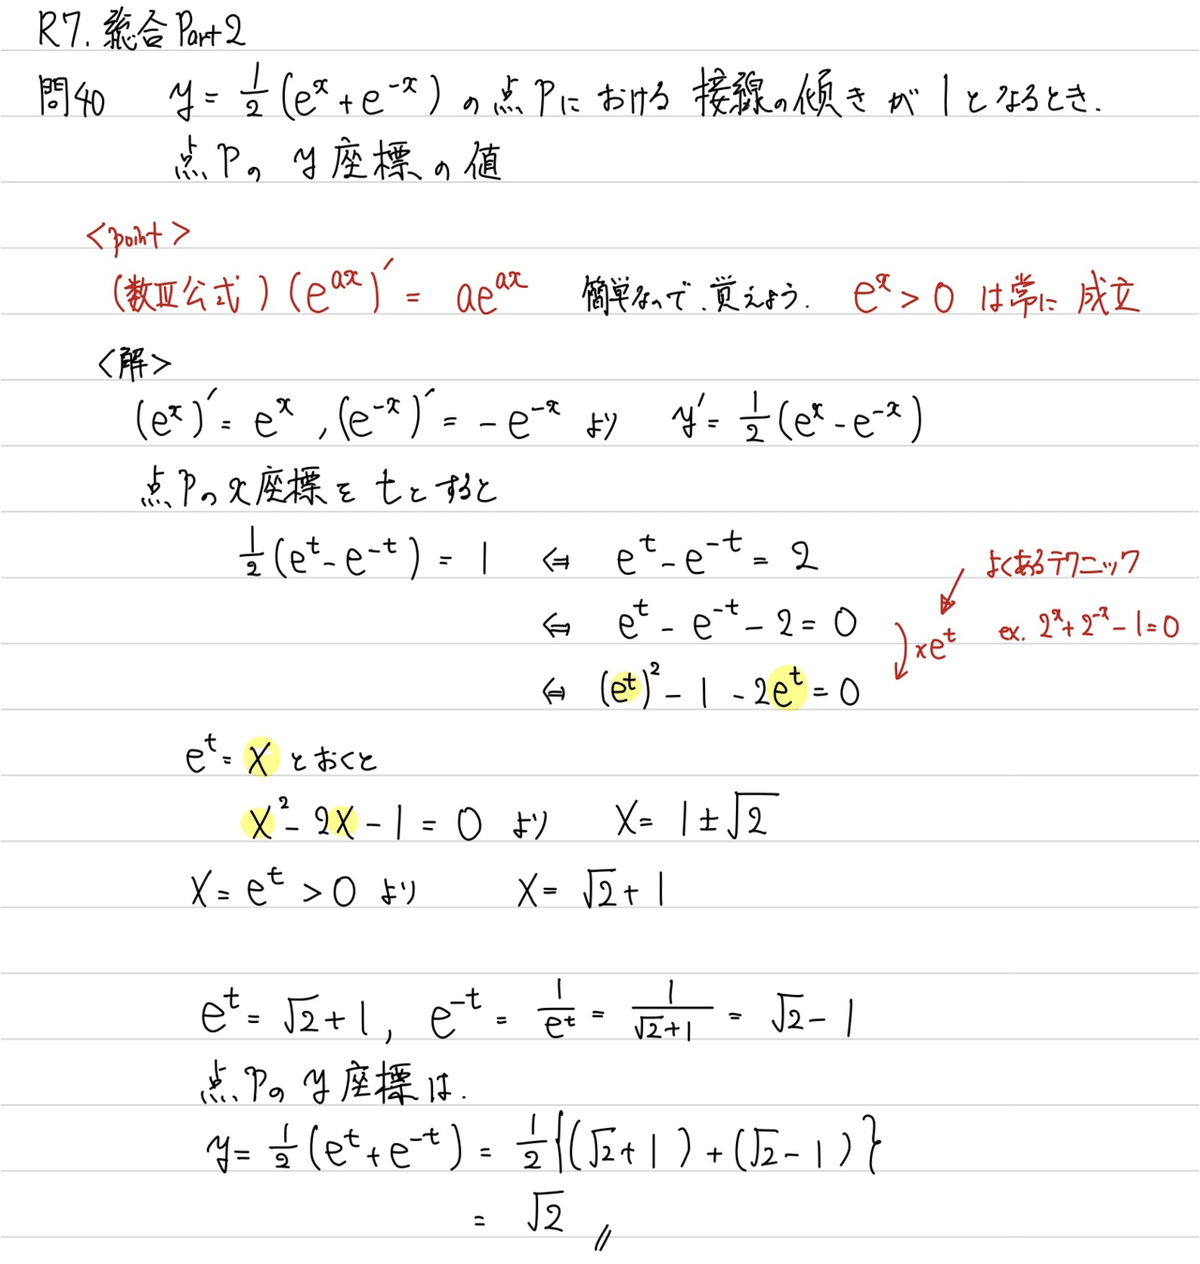 R7. 総合Part2
問40 y = 1/2 (e^x + e^-x) の点Pにおける接線の傾きが1となるとき.
点Pの y座標の値
<point>
(数Ⅲ公式) (e^ax)′ = ae^ax 簡単なので、覚えよう. e^x > 0 は常に成立
<解>
(e^x)′ = e^x , (e^-x)′ = -e^-x より y′ = 1/2 (e^x - e^-x)
点Pのx座標を tとすると
1/2 (e^t - e^-t) = 1 ⇔ e^t - e^-t = 2
よくあるテクニック
⇔ e^t - e^-t - 2 = 0
×e^t ex. 2^x + 2^-x - 1 = 0
⇔ (e^t)^2 - 1 - 2e^t = 0
e^t = X とおくと
X^2 - 2X - 1 = 0 より X = 1 ± √2
X = e^t > 0 より X = √2 + 1
e^t = √2 + 1, e^-t = 1/e^t = 1/(√2+1) = √2 - 1
点Pの y座標は.
y = 1/2 (e^t + e^-t) = 1/2 {(√2 + 1) + (√2 - 1)}
= √2 //